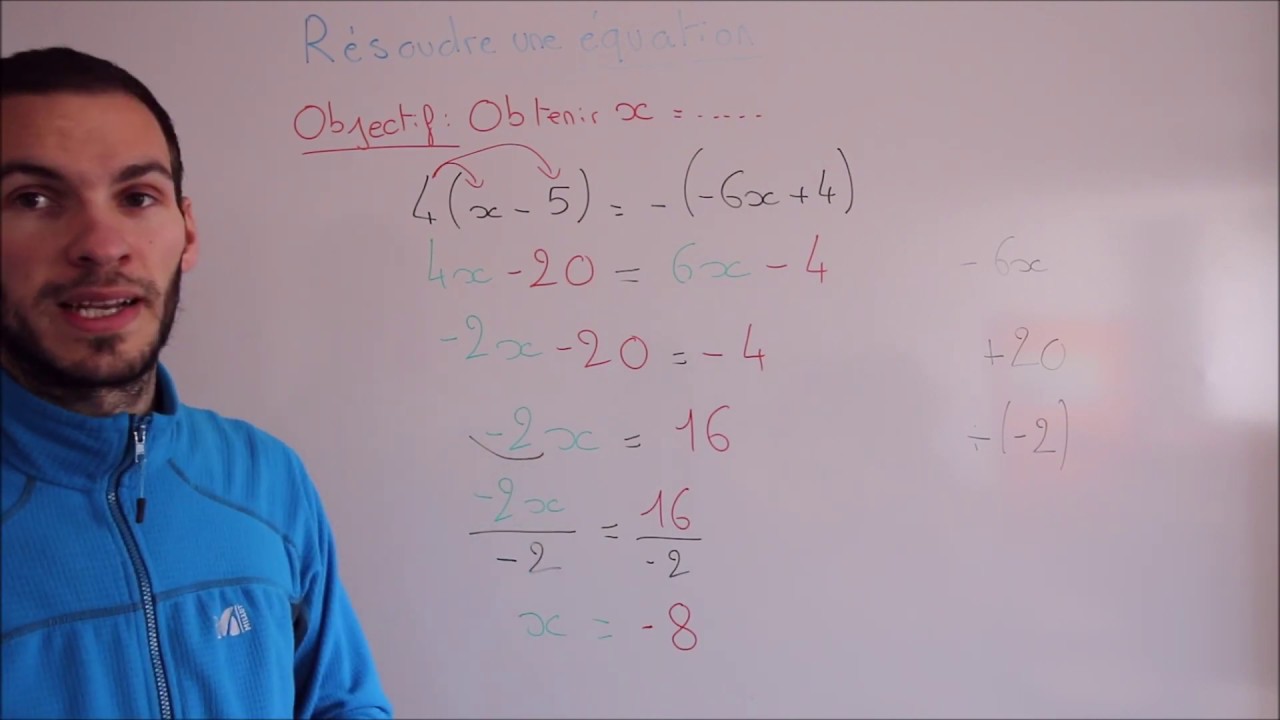 Résoudre une équation
Objectif: Obtenir x = .....
4(x - 5) = -(-6x + 4)
4x - 20 = 6x - 4
- 6x
-2x - 20 = - 4
+20
-2x = 16
÷(-2)
-2x/-2 = 16/-2
x = -8
MILLET